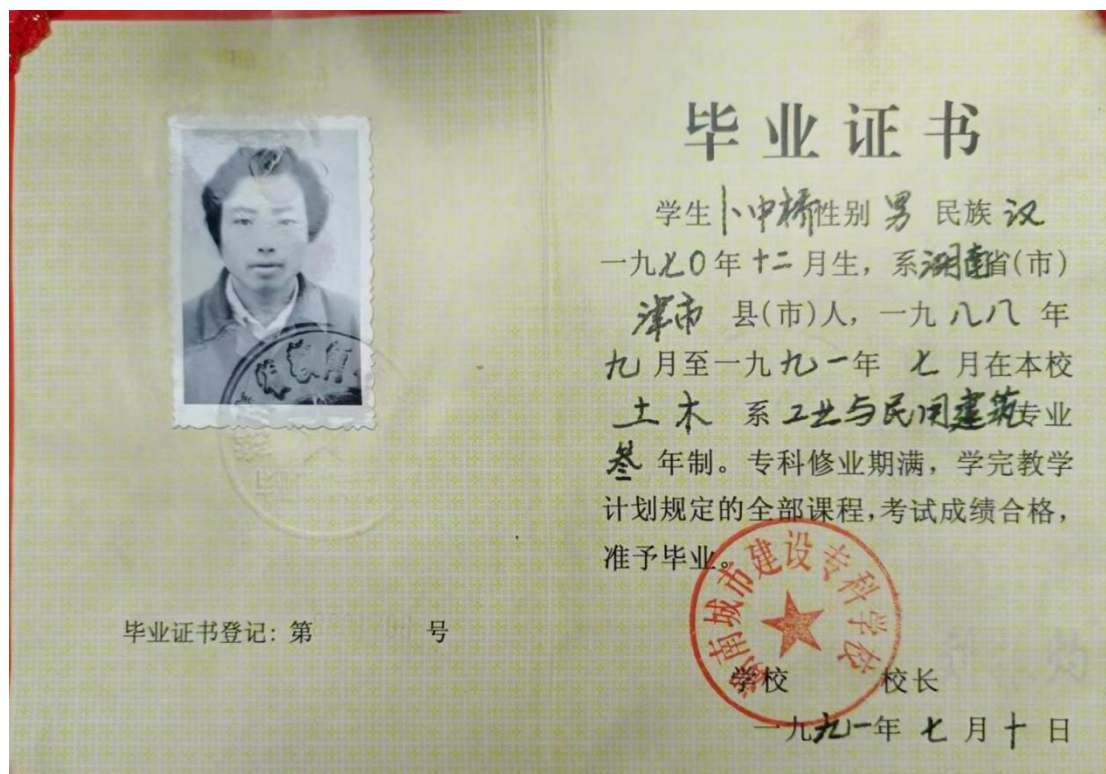 毕业证书
学生卜中桥性别男 民族汉
一九七〇年十二月生，系湖南省(市)
津市 县(市)人，一九八八年
九月至一九九一年 七月在本校
土木 系工业与民用建筑专业
叁年制。专科修业期满，学完教学
计划规定的全部课程，考试成绩合格，
准予毕业。
湖南城市建设专科学校
学校 校长
一九九一年七月十日
毕业证书登记：第 号